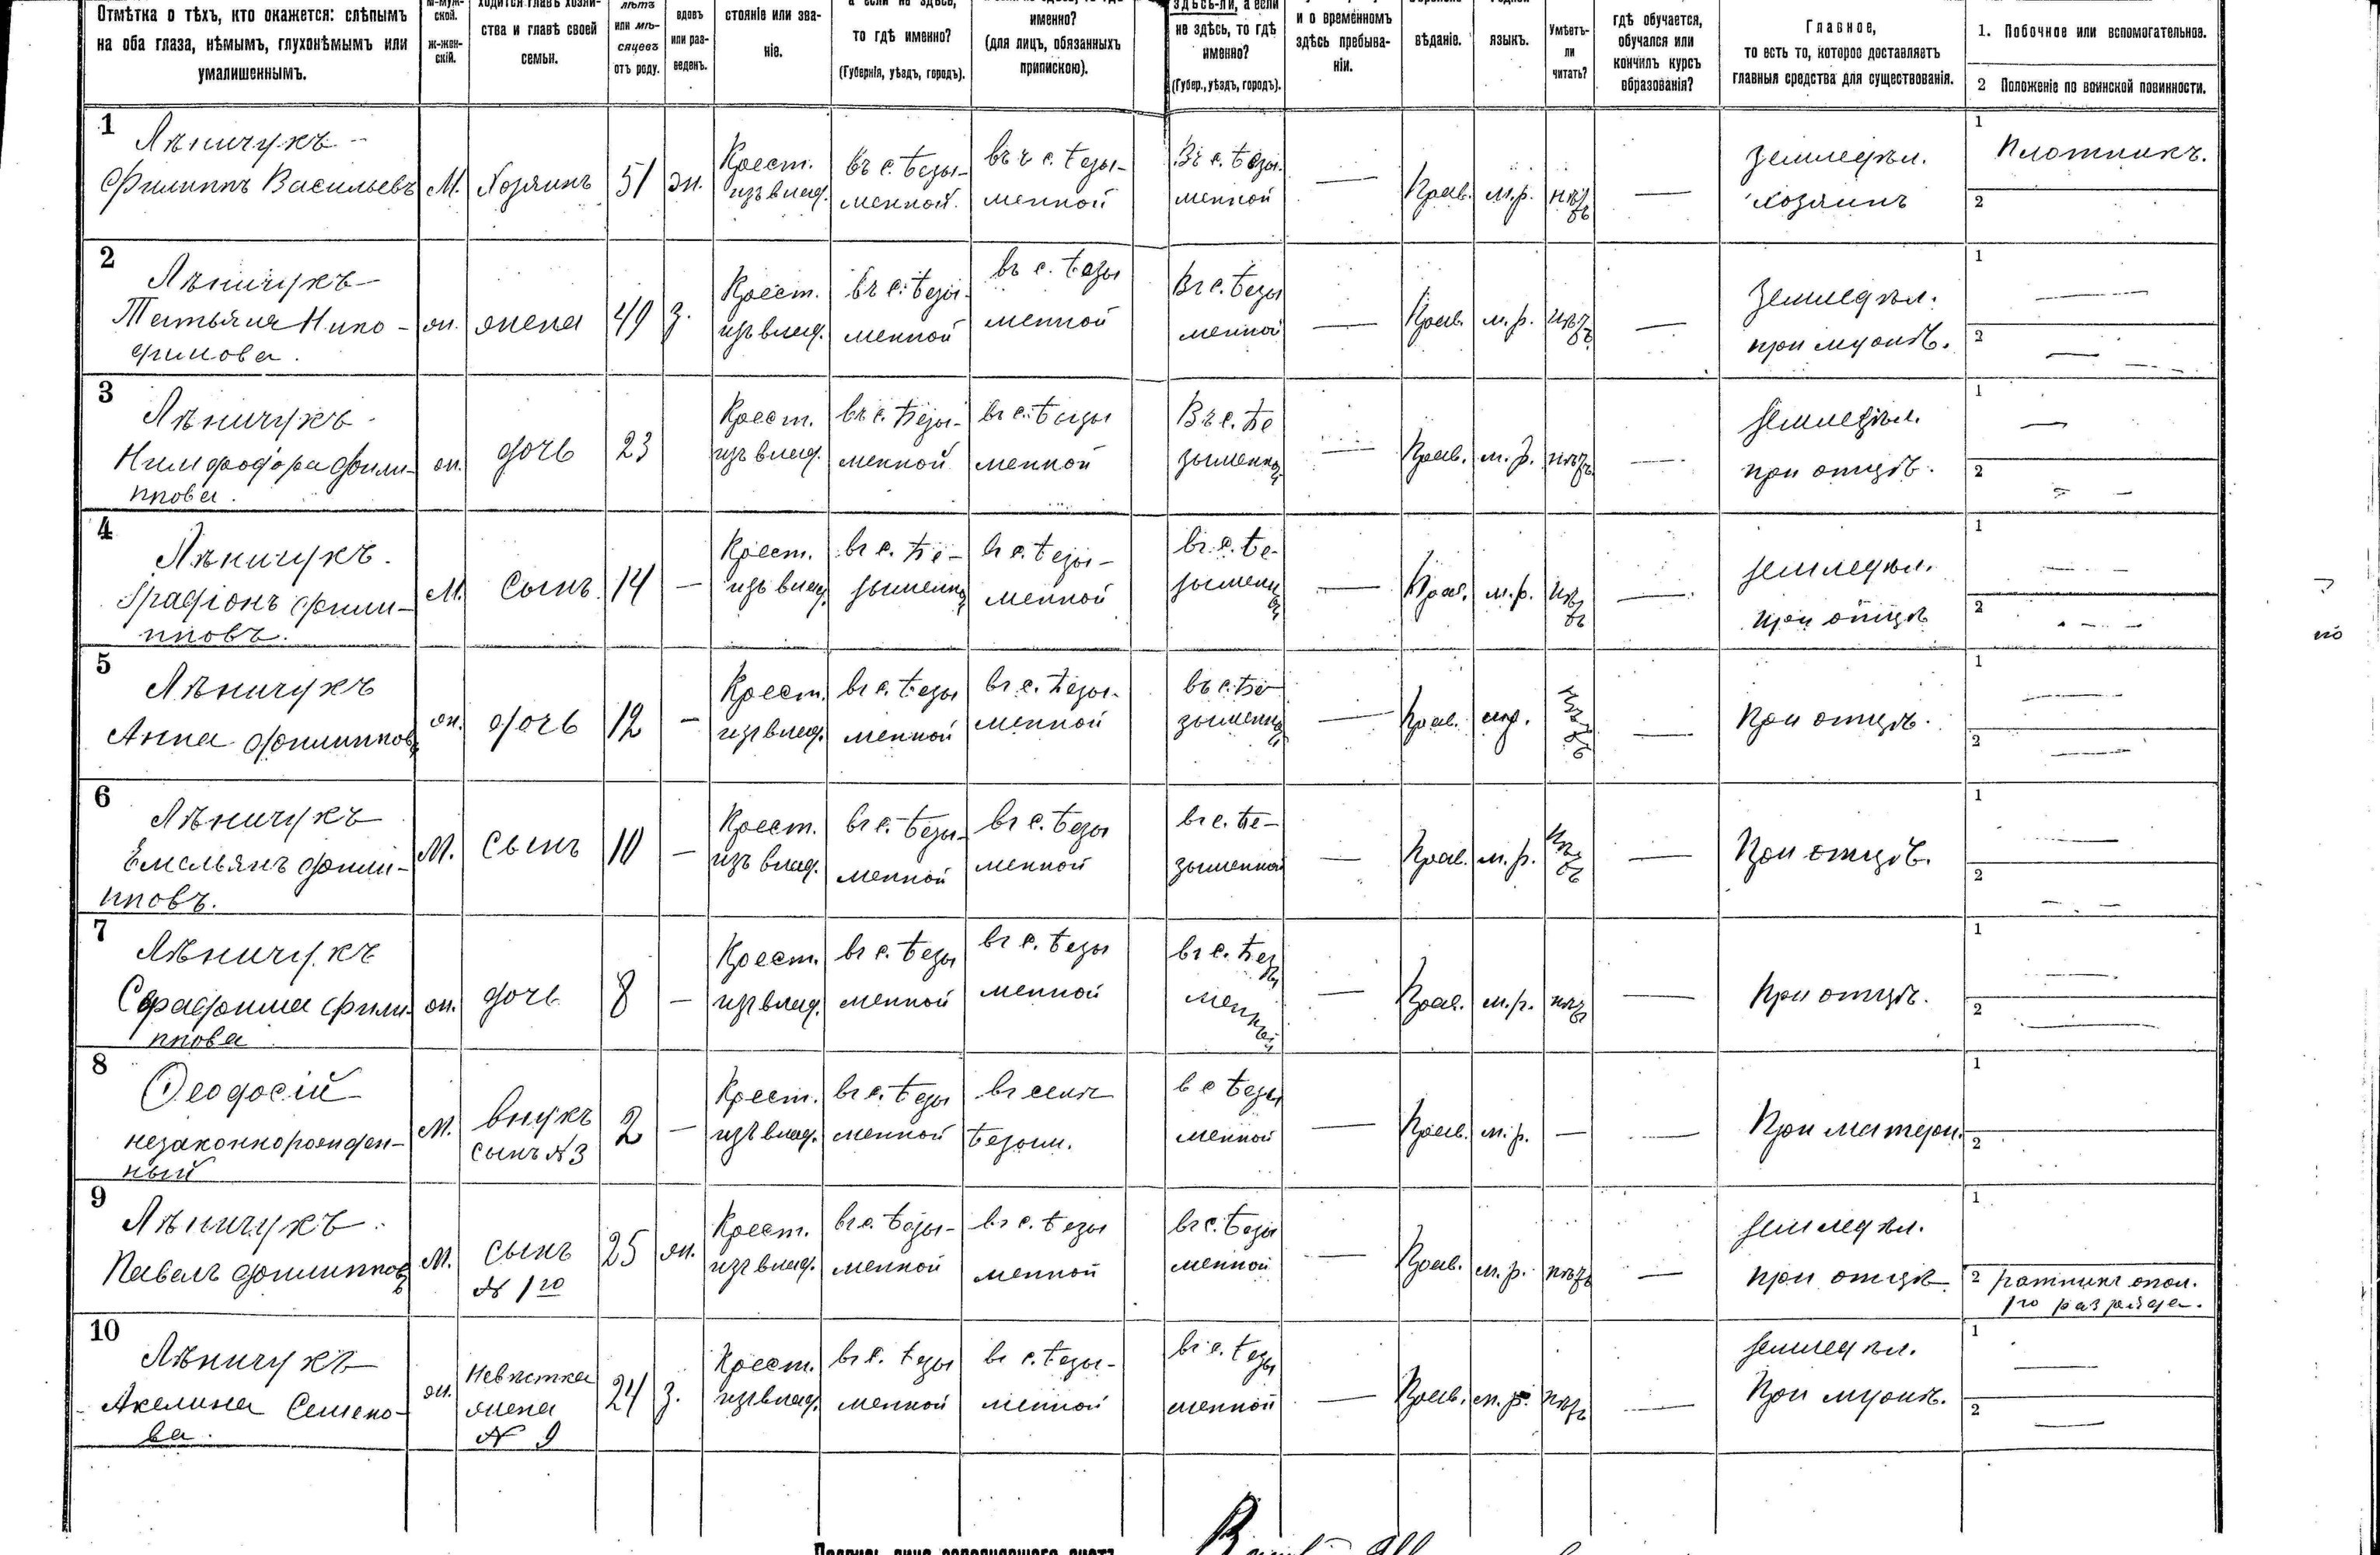 Отмѣтка о тѣхъ, кто окажется: слѣпымъ
на оба глаза, нѣмымъ, глухонѣмымъ или
умалишеннымъ.
м-муж-
ской.
ж-жен-
скій.
ходится главѣ хозяй-
ства и главѣ своей
семьи.
лѣтъ
или мѣ-
сяцевъ
отъ роду.
вдовъ
или раз-
веденъ.
стояніе или зва-
ніе.
а если не здѣсь,
то гдѣ именно?
(Губернія, уѣздъ, городъ).
именно?
(для лицъ, обязанныхъ
припискою).
здѣсь-ли, а если
не здѣсь, то гдѣ
именно?
(Губер., уѣздъ, городъ).
и о временномъ
здѣсь пребыва-
ніи.
вѣданіе.
языкъ.
Умѣетъ-
ли
читать?
гдѣ обучается,
обучался или
кончилъ курсъ
образованія?
Главное,
то есть то, которое доставляетъ
главныя средства для существованія.
1. Побочное или вспомогательное.
2 Положеніе по воинской повинности.
1
Лѣничукъ
Филиппъ Васильевъ
М.
Хозяинъ
51
ж.
Крест.
изъ влад.
въ с. Безы-
менной
въ с. Безы-
менной
Въ с. Безы-
менной
—
Прав.
м.р.
нѣтъ
—
Земледѣл.
хозяинъ
1
Плотникъ.
2
2
Лѣничукъ
Татьяна Нико-
фимова.
ж.
жена
49
з.
Крест.
изъ влад.
въ с. Безы-
менной
въ с. Безы
менной
Въ с. Безы
менной
—
Прав.
м.р.
нѣтъ
—
Земледѣл.
при мужѣ.
1 —
2 —
3
Лѣничукъ
Нимфодора Фили-
ппова.
ж.
дочь
23
Крест.
изъ влад.
въ с. Безы-
менной
въ с. Безы
менной
Въ с. Бе
зыменной
—
Прав.
м.р.
нѣтъ
—
Земледѣл.
при отцѣ.
1 —
2 —
4
Лѣничукъ.
Ірадіонъ Фили-
пповъ.
М.
Сынъ.
14
—
Крест.
изъ влад.
въ с. Бе-
зыменной
въ с. Безы-
менной
въ с. Бе-
зыменной
—
Прав.
м.р.
нѣтъ
—
Земледѣл.
при отцѣ
1 —
2 —
5
Лѣничукъ
Анна Филиппова
ж.
дочь
12
—
Крест.
изъ влад.
въ с. Безы
менной
въ с. Безы-
менной
въ с. Бе
зыменной
—
Прав.
м.р.
нѣтъ
—
При отцѣ.
1 —
2 —
6
Лѣничукъ
Емельянъ Фили-
пповъ.
М.
Сынъ
10
—
Крест.
изъ влад.
въ с. Безы-
менной
въ с. Безы
менной
въ с. Бе-
зыменной
—
Прав.
м.р.
нѣтъ
—
При отцѣ.
1 —
2 —
7
Лѣничукъ
Серафима Фили-
ппова
ж.
дочь
8
—
Крест.
изъ влад.
въ с. Безы
менной
въ с. Безы
менной
въ с. Безы
менной
—
Прав.
м.р.
нѣтъ
—
При отцѣ.
1 —
2 —
8
Ѳеодосій
незаконнорожден-
ный
М.
внукъ
сынъ № 3
2
—
Крест.
изъ влад.
въ с. Безы
менной
въ селѣ
Безым.
в с Безы
менной
—
Прав.
м.р.
—
—
При матери.
1
2
9
Лѣничукъ
Павелъ Филипповъ
М.
сынъ
№ 1го
25
ж.
Крест.
изъ влад.
въ с. Безы-
менной
въ с. Безы
менной
въ с. Безы
менной
—
Прав.
м.р.
нѣтъ
—
Земледѣл.
при отцѣ
1
2 ратникъ опол.
1го разряда.
10
Лѣничукъ
Акелина Семено-
ва.
ж.
Невѣстка
жена
№ 9
24
з.
Крест.
изъ влад.
въ с. Безы
менной
въ с. Безы-
менной
въ с. Безы
менной
—
Прав.
м.р.
нѣтъ
—
Земледѣл.
При мужѣ.
1 —
2 —